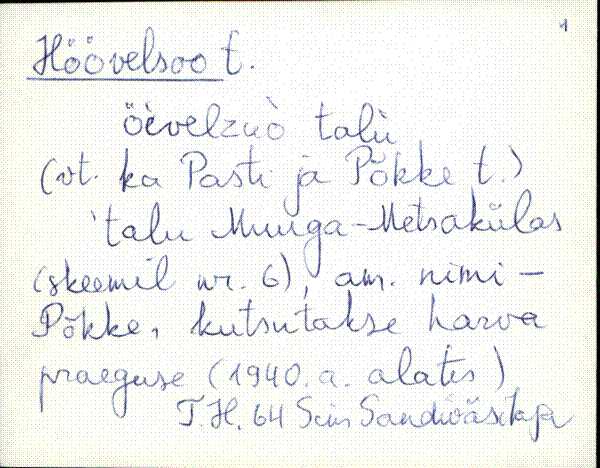 1
Höövelsoo t.
öèvelzuò talù
(vt. ka Pasti ja Põkke t.)
'talu Muuga-Metsakülas
(skeemil nr. 6), am. nimi -
Põkke, kutsutakse harva
praeguse (1940. a. alates)
T.H. 64